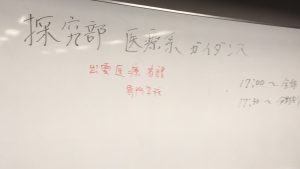 探究部 医療系ガイダンス
出雲医療看護
専門学校
17:00～
17:30～